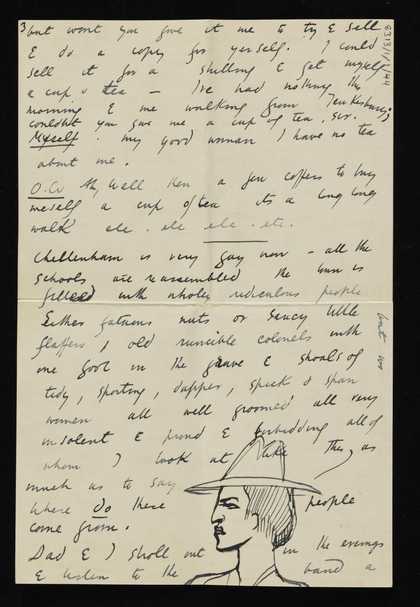 3) but wont you give it me to try & sell
& do a copy for yerself. I could
sell it for a shilling & get myself
a cup o tea — I've had nothing this
morning & me walking from Tewkesbury,
couldn't you give me a cup of tea, sir.
Myself. my good woman I have no tea
about me.
O.W Ah, well then a few coppers to buy
meself a cup of tea its a long long
walk etc. etc etc. etc.
Cheltenham is very gay now — all the
schools are reassembled the town is
filled with wholey ridiculous people
Either fatuous nuts or saucy little
flappers, old runcible colonels with
one foot in the grave & shoals of
tidy, sporting, dapper, speck & span
women all well groomed all very
insolent & proud & forbidding all of
whom I look at like this as
much as to say
where do these people
come from.
Dad & I stroll out in the evenings
& listen to the band a
but no
6313/1/1/44